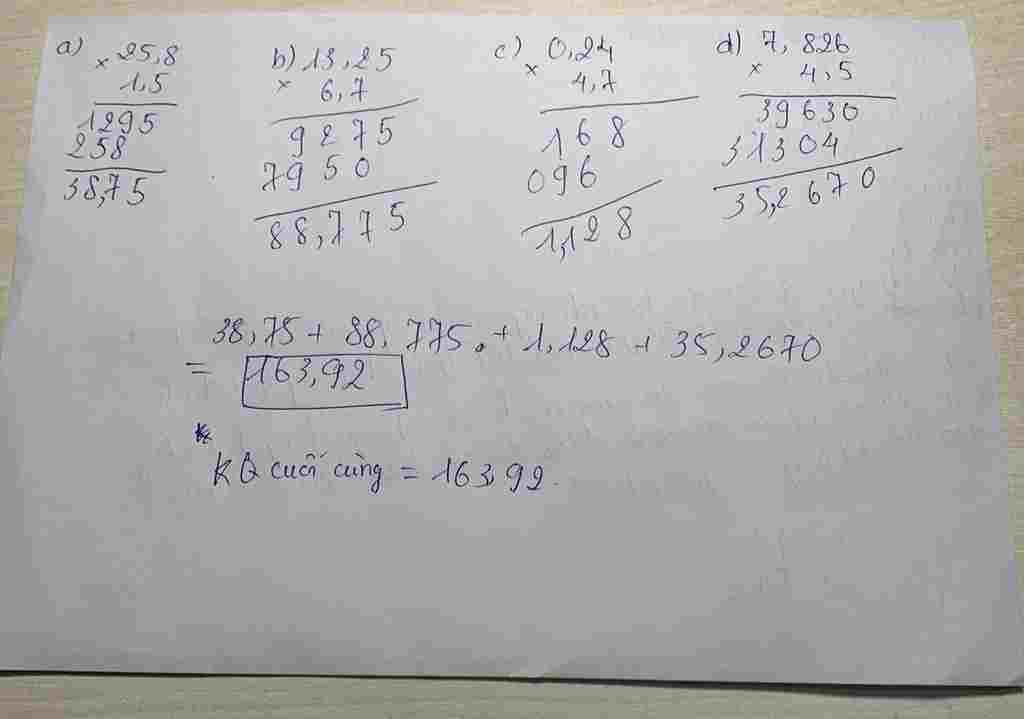 a) × 25,8
1,5
1295
258
38,75
b) 13,25
× 6,7
9275
7950
88,775
c) 0,24
× 4,7
168
096
1,128
d) 7,826
× 4,5
39630
31304
35,2670
38,75 + 88,775 + 1,128 + 35,2670
= 163,92
KQ cuối cùng = 163,92.